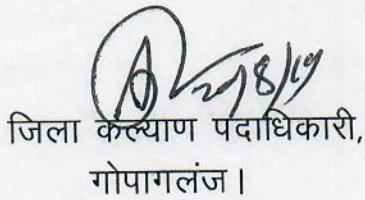 जिला कल्याण पदाधिकारी,
गोपागलंज।